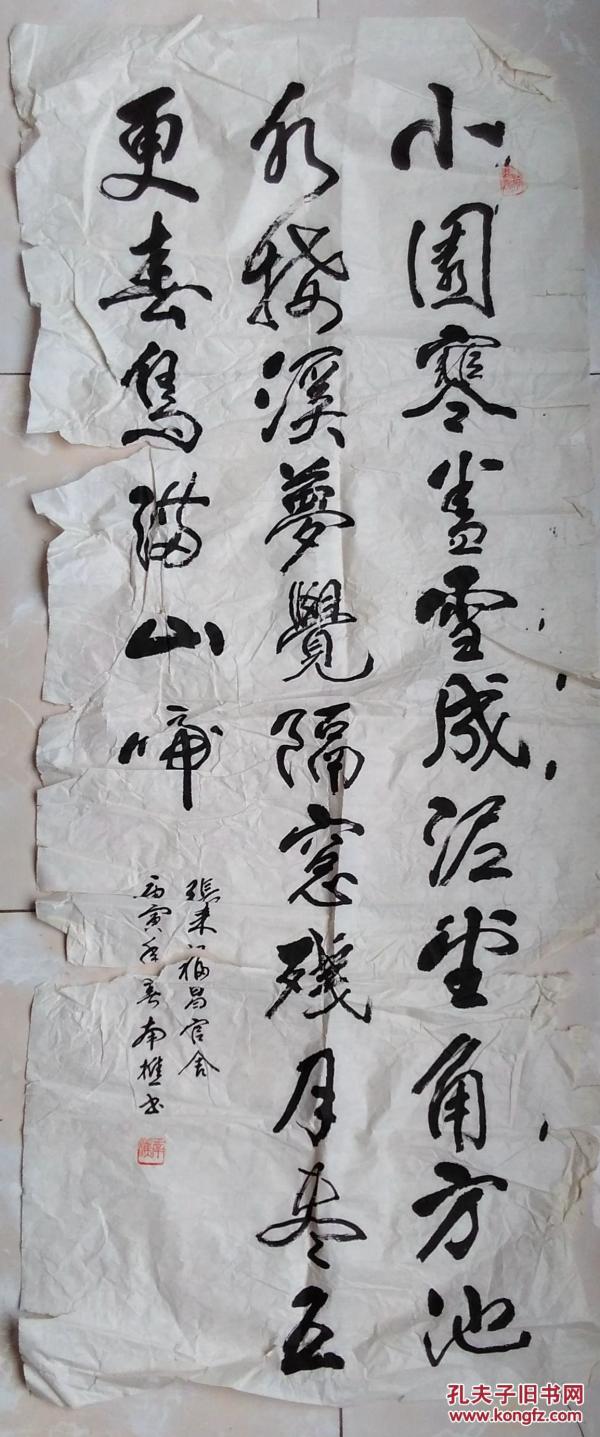 小園寒盡雪成泥堂角方池
水接溪夢覺隔窓殘月盡五
更春鳥滿山啼
張耒福昌官舍
丙寅年春南樵书
孔夫子旧书网
www.kongfz.com